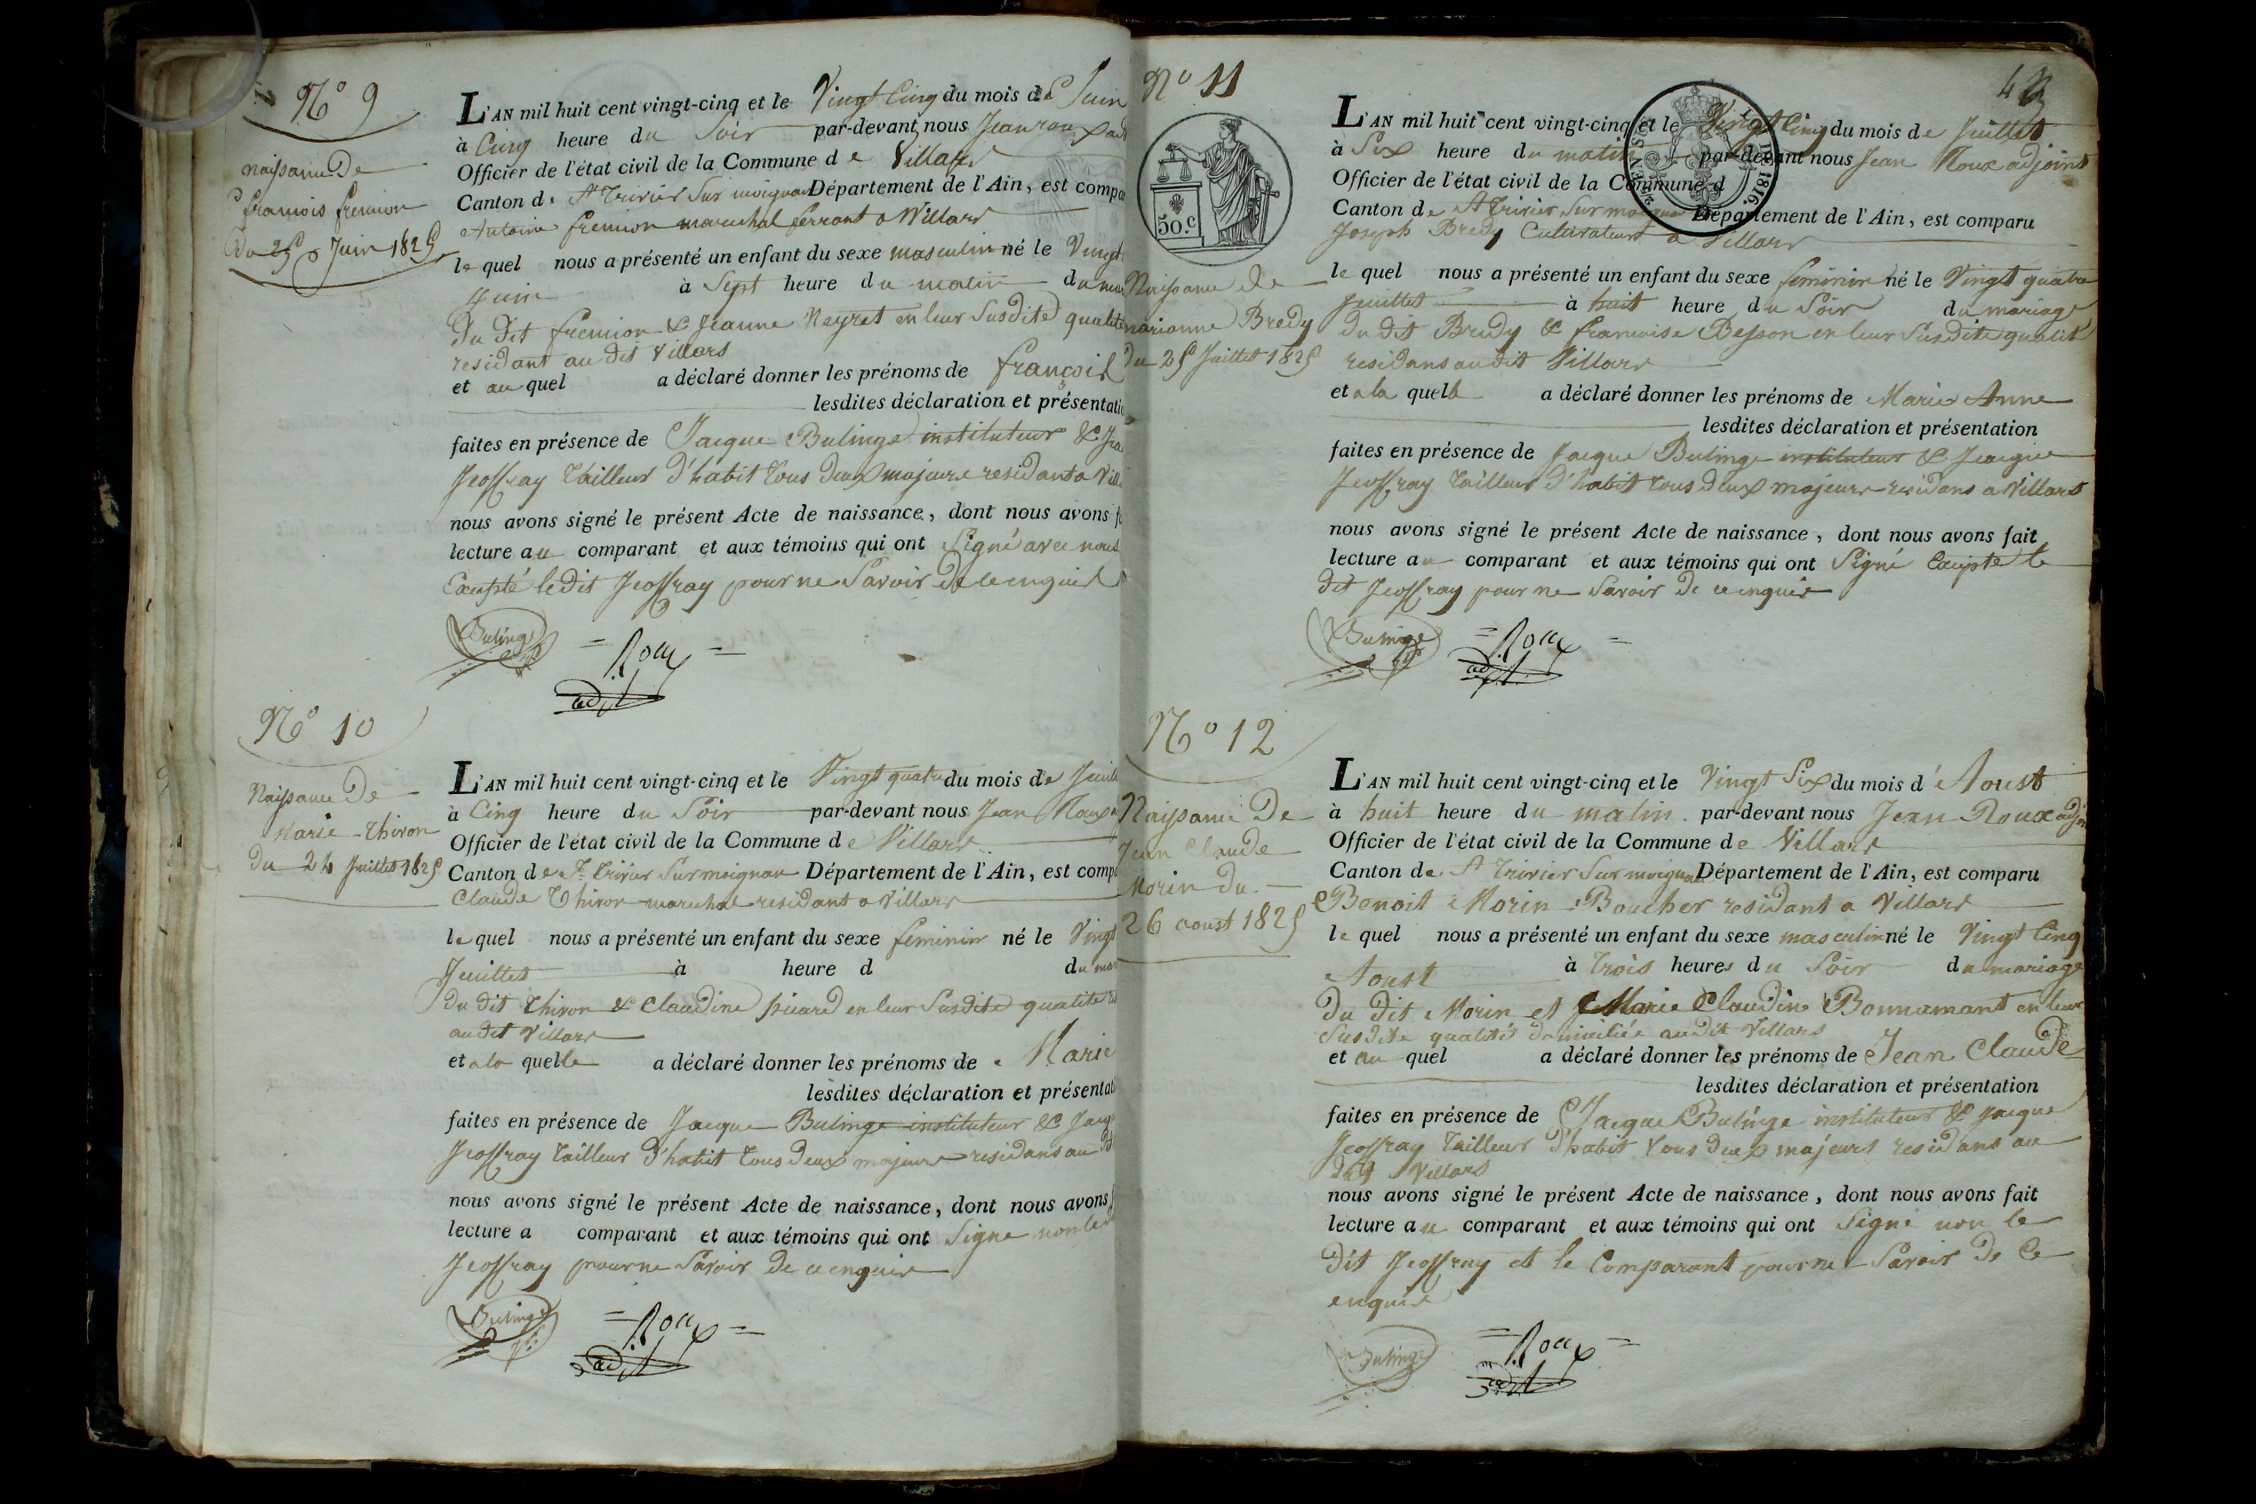 N° 9
naissance De
françois fremion
Du 25 Juin 1825
L'AN mil huit cent vingt-cinq et le Vingt Cinq du mois de Juin
à Cinq heure du Soir par-devant nous Jean roux
Officier de l'état civil de la Commune de Villars
Canton de St trivier Sur moignan Département de l'Ain, est compa
Antoine fremion marechal ferrant a Villars
lequel nous a présenté un enfant du sexe masculin né le Vingt
Juin à Sept heure du matin du
Du dit fremion & Jeanne Neyret en leur Susdite qualité
residant au dit Villars
et au quel a déclaré donner les prénoms de françois
lesdites déclaration et présentatio
faites en présence de Jacque Bulinge instituteur &
Jeoffray tailleur d'habit tous deux majeure residant a Vill
nous avons signé le présent Acte de naissance, dont nous avons f
lecture au comparant et aux témoins qui ont Signé avec nous
Excepté le dit Jeoffray pour ne Savoir de ce enquis
Bulinge = Roux =
adjt
N° 10
Naissance De
Marie Thiron
du 24 Juillet 1825
L'AN mil huit cent vingt-cinq et le Vingt quatre du mois de Juill
à Cinq heure du Soir par-devant nous Jean Roux
Officier de l'état civil de la Commune de Villars
Canton de St trivier Sur moignan Département de l'Ain, est comp
Claude Thiron marechal residant a Villars
lequel nous a présenté un enfant du sexe feminin né le Vingt
Juillet à heure d du
Du dit Thiron & Claudine picard en leur Susdite qualité
audit Villars
et a la quelle a déclaré donner les prénoms de Marie
lesdites déclaration et présentat
faites en présence de Jacque Bulinge instituteur & Jacq
Jeoffray tailleur d'habit tous deux majeure residans au dt
nous avons signé le présent Acte de naissance, dont nous avons f
lecture a comparant et aux témoins qui ont Signe non le
Jeoffray pour ne Savoir de ce enquis
Bulinge = Roux =
adjt
N° 11
50.C
Naissance de
marianne Bredy
du 25 Juillet 1825
4
1816.
L'AN mil huit cent vingt-cinq et le Vingt Cinq du mois de Juillet
à Six heure du matin par-devant nous Jean Roux adjoint
Officier de l'état civil de la Commune d
Canton de St trivier Sur moignan Département de l'Ain, est comparu
Joseph Bredy Cultivateur a Villars
lequel nous a présenté un enfant du sexe feminin né le Vingt quatre
Juillet à huit heure du Soir du mariage
du dit Bredy & francoise Besson en leur Susdite qualité
residans au dit Villars
et a la quelle a déclaré donner les prénoms de Marie Anne
lesdites déclaration et présentation
faites en présence de Jacque Bulinge instituteur & Jacque
Jeoffray tailleur d'habit tous deux majeure residans a Villars
nous avons signé le présent Acte de naissance, dont nous avons fait
lecture au comparant et aux témoins qui ont Signé Excepte le
dit Jeoffray pour ne Savoir de ce enquis
Bulinge = Roux =
adjt
N° 12
Naissance De
Jean Claude
Morin Du
26 aoust 1825
L'AN mil huit cent vingt-cinq et le Vingt Six du mois d'Aoust
à huit heure du matin par-devant nous Jean Roux adjoi
Officier de l'état civil de la Commune de Villars
Canton de St trivier Sur moignan Département de l'Ain, est comparu
Benoit Morin Boucher residant a Villars
lequel nous a présenté un enfant du sexe masculin né le Vingt Cinq
Aoust à trois heures du Soir du mariage
Du dit Morin et Marie Claudine Bonnamant en leur
Susdite qualité domiciliée audit Villars
et au quel a déclaré donner les prénoms de Jean Claude
lesdites déclaration et présentation
faites en présence de Jacque Bulinge instituteur & Jacque
Jeoffray tailleur d'habit tous deux majeurs residans au
dit Villars
nous avons signé le présent Acte de naissance, dont nous avons fait
lecture au comparant et aux témoins qui ont Signé non le
dit Jeoffray et le Comparant pour ne Savoir De Ce
enquis
Bulinge = Roux =
adjt